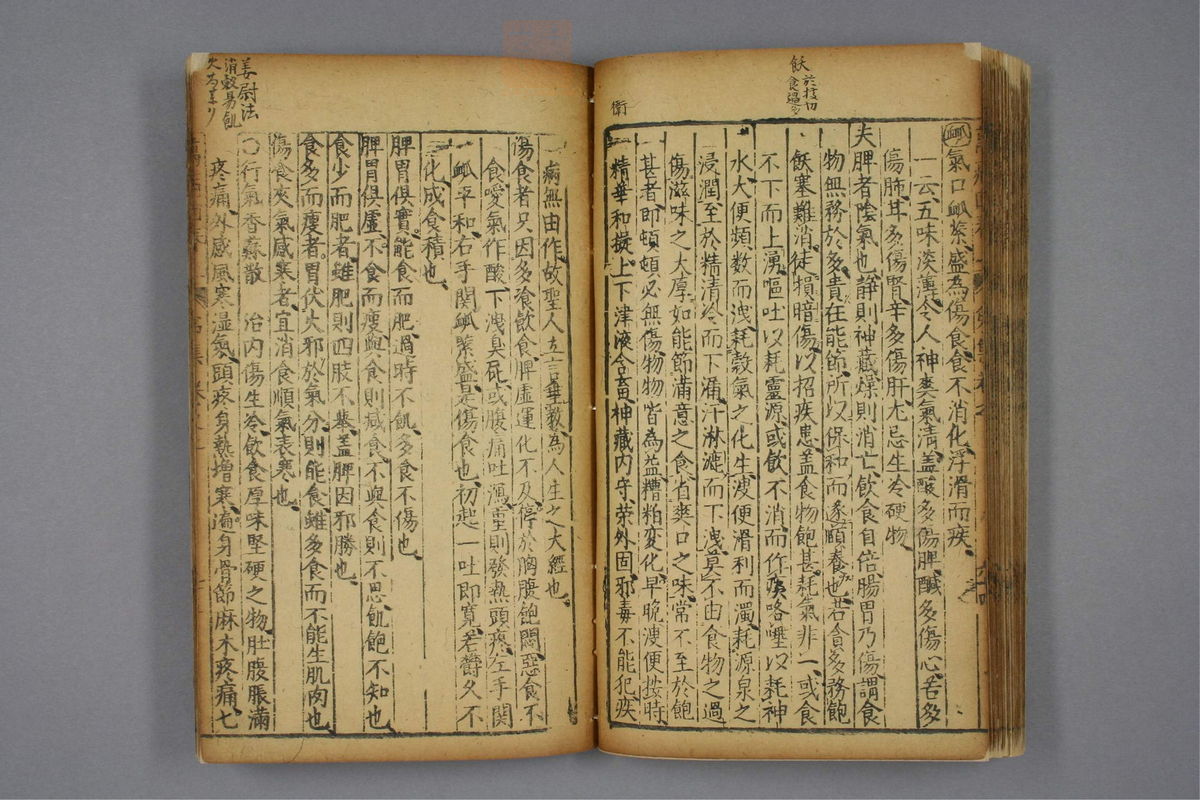 飫 於據切
食過多
衛
㊊氣口脉紧盛為傷食食不消化浮滑而疾
一云五味淡薄令人神爽氣清盖酸多傷脾醎多傷心苦多
傷肺甘多傷腎辛多傷肝尤忌生冷硬物
夫脾者陰氣也靜則神藏燥則消亡飲食自倍腸胃乃傷謂食
物無務於多貴在能節所以保和而遂頤養也若貪多務飽
飫塞難消徒損暗傷以招疾患盖食物飽甚耗氣非一或食
不下而上湧嘔吐以耗靈源或飲不消而作痰咯唾以耗神
水大便頻数而洩耗穀氣之化生溲便滑利而濁耗源泉之
浸潤至於精清冷而下漏汗淋漉而下洩莫不由食物之過
傷滋味之大厚如能節滿意之食省爽口之味常不至於飽
甚者即頓頓必無傷物物皆為益糟粕変化早晚溲便按時
精華和凝上下津液含畜神藏内守荣外固邪毒不能犯疾
姜尉法
消穀易飢
病無由作故聖人立言垂教為人生之大經也
傷食者只因多飡飲食脾虚運化不及停於胸腹飽悶惡食不
食噯氣作酸下洩臭矹或腹痛吐瀉重則發熱頭疼左手関
脉平和右手関脉緊盛是傷食也初起一吐即寛若欝久不
化成食積也
脾胃俱實能食而肥過時不飢多食不傷也
脾胃俱虚不食而瘦與食則减食不與食則不思飢飽不知也
食少而肥者雖肥則四肢不舉盖脾因邪勝也
食多而瘦者胃伏火邪於氣分則能食雖多食而不能生肌肉也
傷食夾氣感寒者宜消食順氣表寒也
〇行氣香蘇散 治内傷生冷飲食厚味堅硬之物肚腹脹滿
疼痛外感風寒湿氣頭疼身熱增寒遍身骨節麻木疼痛七